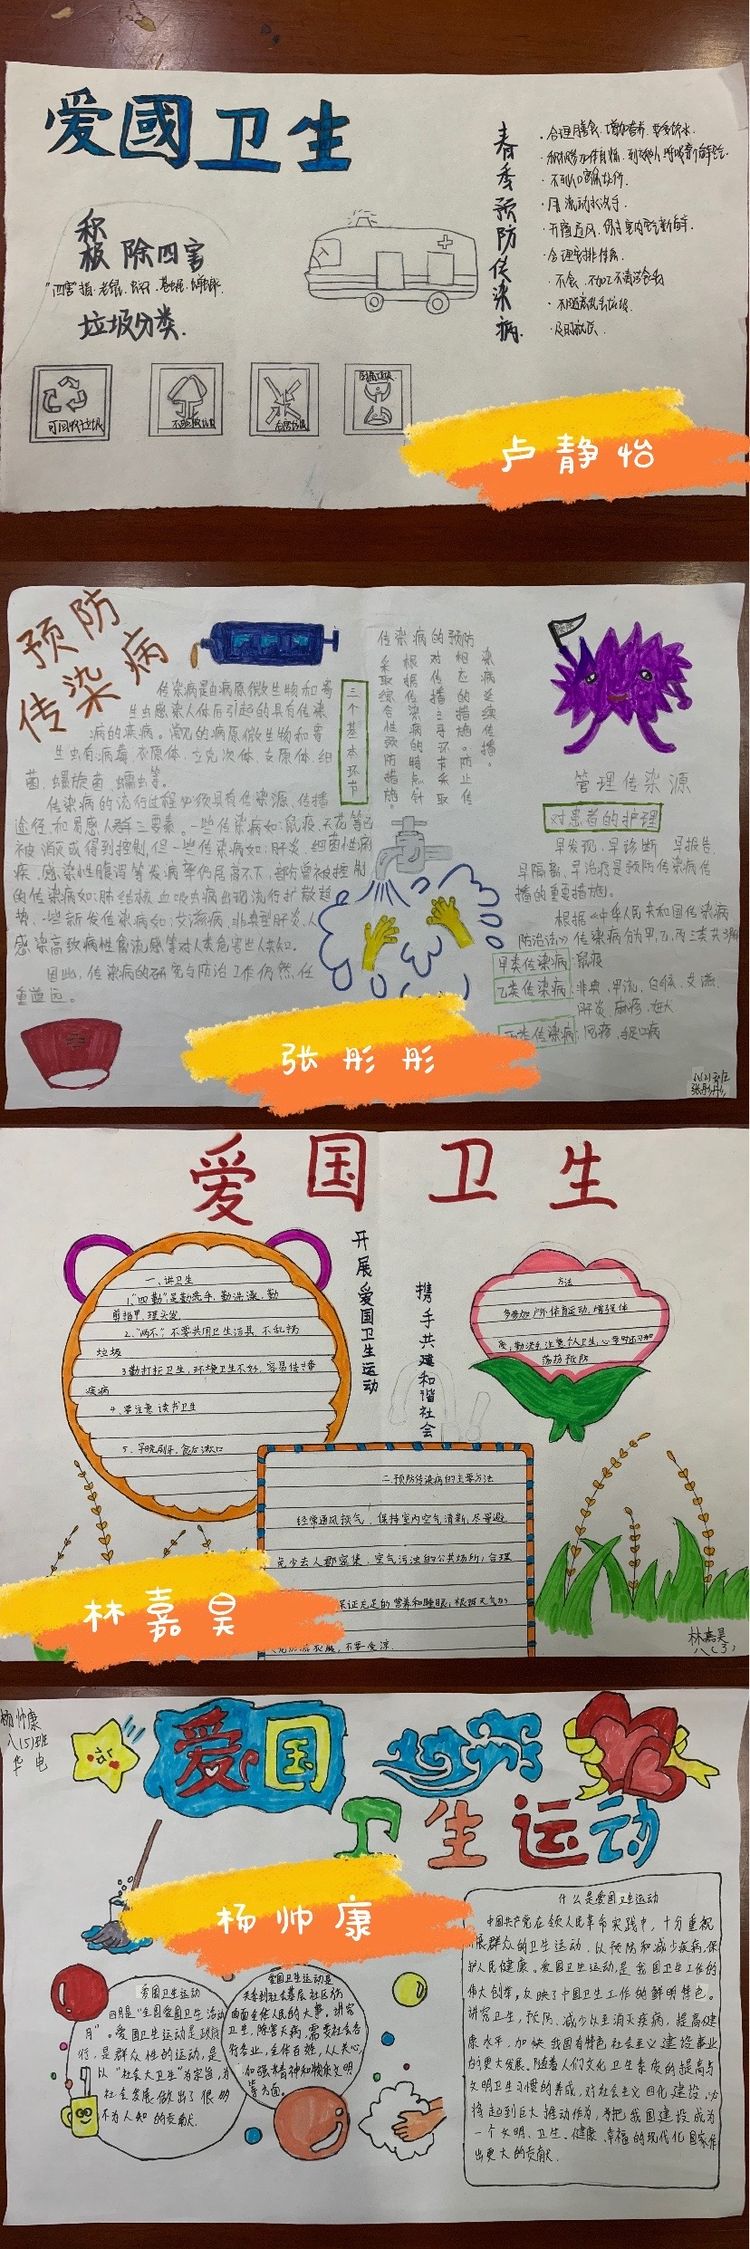 爱國卫生
积极 除四害
垃圾分类.
可回收垃圾
春季预防传染病
·合理膳食.增加营养.要多饮水
·不到人口密集场所.
·用流动水洗手
·开窗通风.保持室内空气新鲜
·合理安排作息
·及时就医
卢静怡
预防
传染病
传染病是由病原微生物和寄
生虫感染人体后引起的具有传染
病的疾病。常见的病原微生物和寄
生虫有:病毒、衣原体、立克次体、支原体、细
菌、螺旋菌、蠕虫等。
传染病的流行过程必须具有传染源、传播
途径、和易感人群三要素。一些传染病如:鼠疫、天花等已
被消灭或得到控制,但一些传染病如:肝炎、细菌性痢
疾、感染性腹泻等发病率仍居高不下、部分曾被控制
的传染病如:肺结核、血吸虫病出现流行扩散趋
势、一些新发传染病如:艾滋病、非典型肝炎、人
感染高致病性禽流感等对人类危害世人共知。
因此,传染病的研究与防治工作仍然任
重道远。
三个基本环节
传染病的预防
采取综合性预防措施。
根据传染病的特点针
对传播主导环节采取
相应的措施。防止传
染病延续传播。
管理传染源
对患者的护理
早发现、早诊断、早报告、
早隔离、早治疗是预防传染病传
播的重要措施。
根据《中华人民共和国传染病
防治法》传染病分为甲、乙、丙三类共3
甲类传染病:鼠疫
乙类传染病:非典、甲流、白喉、艾滋、
肝炎、麻疹、
丙类传染病:风疹、手足口病
张彤彤
张彤彤
爱国卫生
开展爱国卫生运动
携手共建和谐社会
一、讲卫生
1."四勤"是勤洗手,勤洗澡,勤
剪指甲,理头发
2."两不"不要共用卫生洁具 不乱扔
垃圾
3.勤打扫卫生,环境卫生不好,容易传播
疾病
4、要注意读书卫生
5、早晚刷牙,食后漱口
方法
多参加户外体育运动,增强体
质,勤洗手,注意个人卫生,
二.预防传染病的主要方法
经常通风换气,保持室内空气清新,尽量避
免少去人群密集,空气污浊的公共场所;合理
保证充足的营养和睡眠;根据天气
不要受凉.
林嘉昊
林嘉昊
八(3)
杨帅康
八(5)班
华电
爱国
卫生运动
杨帅康
爱国卫生运动
四月是"全国爱国卫生活动
月"。爱国卫生运动是政府
行,是群众性的运动,是
以"社会大卫生"为宗旨,为
社会发展做出了很多
不为人知的贡献.
爱国卫生运动是
关系到社会基层社区仿
由面全体人民的大事.讲究
卫生,除害灭病,需要社会各
行各业,全体百姓,人人关心,
加强精神和物质文明
等方面。
什么是爱国卫生运动
中国共产党在领人民革命实践中,十分重视
展群众的卫生运动,以预防和减少疾病,保
护人民健康。爱国卫生运动,是我国卫生工作的
伟大创举,反映了中国卫生工作的鲜明特色。
讲究卫生,预防、减少以至消灭疾病,提高健
康水平,加快我国有特色社会主义建设事业
的更大发展。随着人们文化卫生素质的提高与
文明卫生习惯的养成,对社会主义四化建设,必
将起到巨大推动作为,为把我国建设成为
一个文明、卫生、健康、幸福的现代化国家作
出更大的贡献.